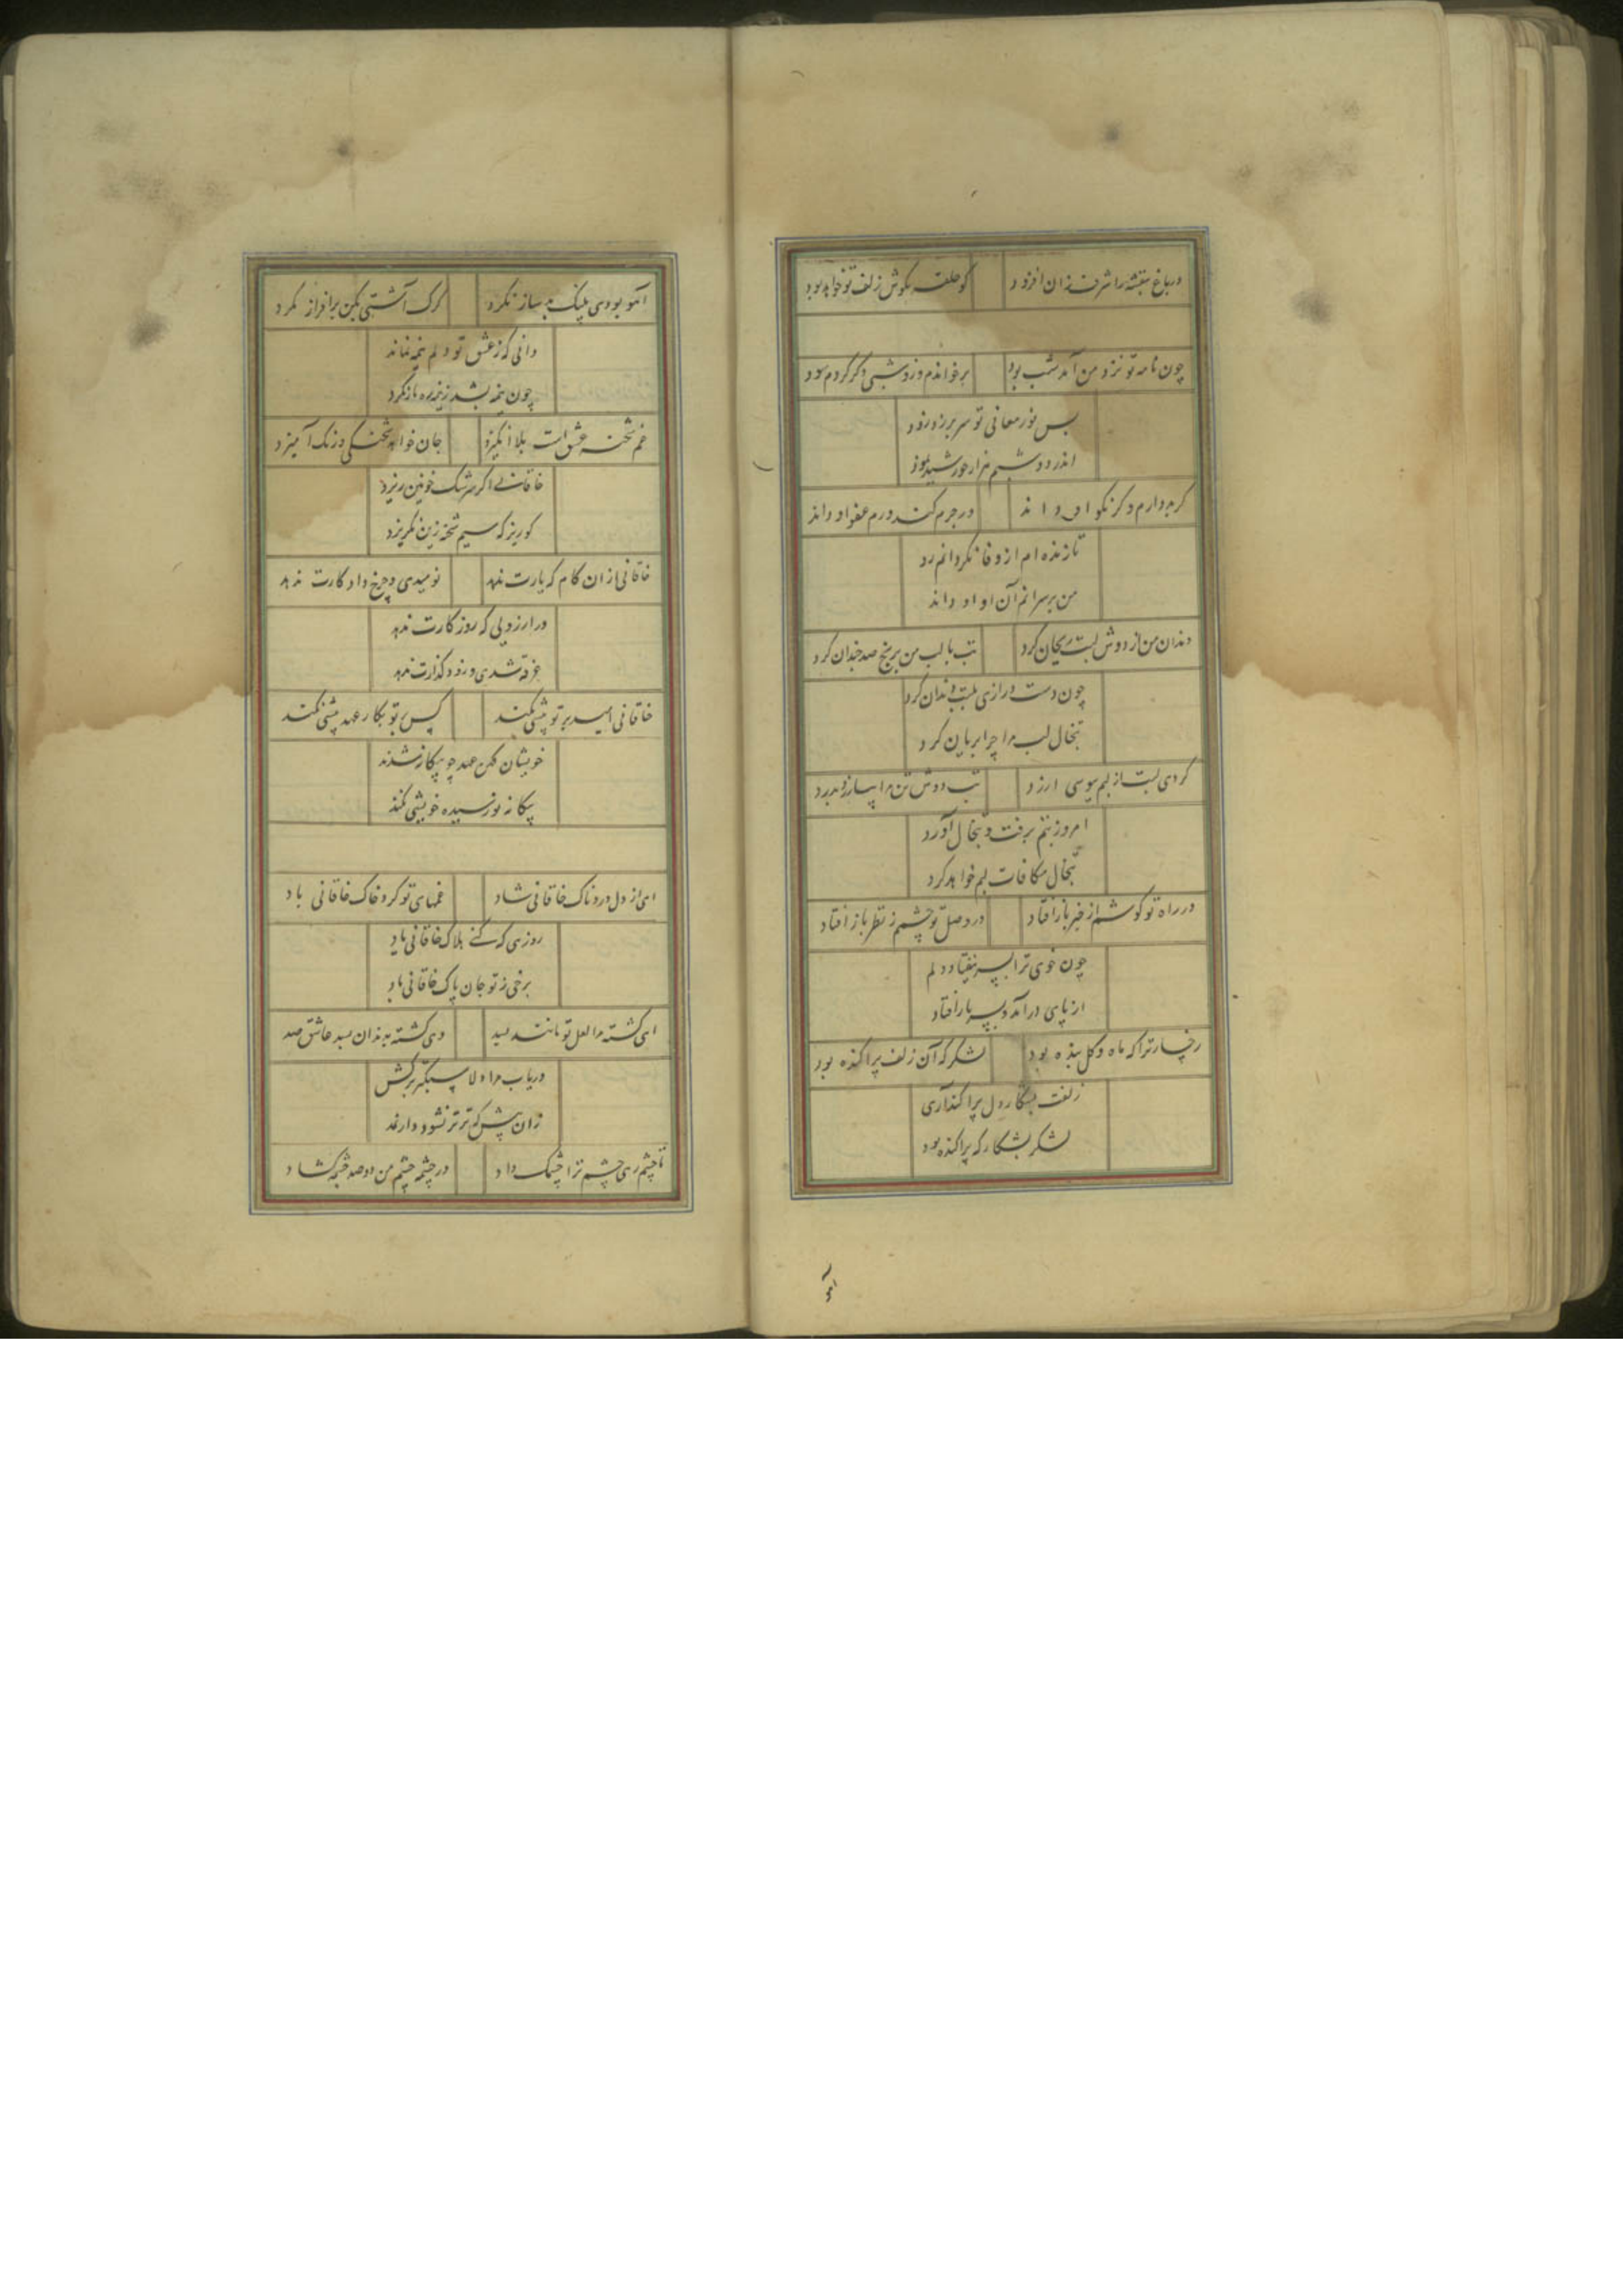 در باغ بنفشه را شرف زان افزود کو حلقه بگوش زلف تو خواهد بود
چون نامه تو نزد من آمد شب بود برخواندم و زو شبی دگر کردم سود
بس نور معانی تو سر بر زد زود
اندر دو شبم هزار خورشید نمود
گر بد دارم و گر نکو او داند ور جرم کند ورم عفو او داند
تا زنده‌ام از وفا نگردانم رو
من بر سر آنم آن او او داند
دندان من از دوش لبت ریحان کرد تب با لب من برنج صد چندان کرد
چون دست درازی به لبت دندان کرد
تبخال لب مرا چرا بریان کرد
کردی لبت از لبم ببوسی ارزد تب دوش تن مرا بیازرد بدرد
امروز تبم برفت و تبخال آورد
تبخال مکافات لبم خواهد کرد
در راه تو گوشم از خبر باز افتاد در وصل تو چشمم ز نظر باز افتاد
چون خوی ترا بسر نیفتاد دلم
از پای درآمد و بسر باز افتاد
رخسار ترا که ماه و گل بنده بود لشکر که آن زلف پراکنده بود
زلفت بشکار دل پراکند آری
لشکر بشکار که پراکنده بود
آهو
آهو بودی پلنگ بدساز نکرد گرگ آشتی بکن برافراز نکرد
دانی که ز عشق تو دلم نیمه نماند
چون نیمه بشد ز نیمه ره باز نکرد
غم شحنه عشق است بلا انگیزد جان خواهد شحنگی و رنگ آمیزد
خاقانی اگر سرشک خونین ریزد
گو ریز که سیم شحنه زین نگریزد
خاقانی از آن کام که یارت ندهد نومیدی و چرخ داد کارت ندهد
در آرزویی که روزگارت ندهد
غرقه شدی و زود گذارت ندهد
خاقانی امید بر تو بیشی نکند کس بر تو بکار عهد پیشی نکند
خویشان کهن عهد چو بیگانه شدند
بیگانه نورسیده خویشی نکند
ای از دل دردناک خاقانی شاد غمهای تو کرد خاک خاقانی باد
روزی که کنی هلاک خاقانی یاد
برخی ز تو جان پاک خاقانی باد
ای گشته مرا لعل تو مانند بسد وی کشته بدندان بسد عاشق صد
دریاب مرا دلا سبکتر برکش
زان پیش که تر تر نشود دارغد
تا چشم رهی چشم ترا چشمک داد در چشمه چشم من دو صد چشمه گشاد